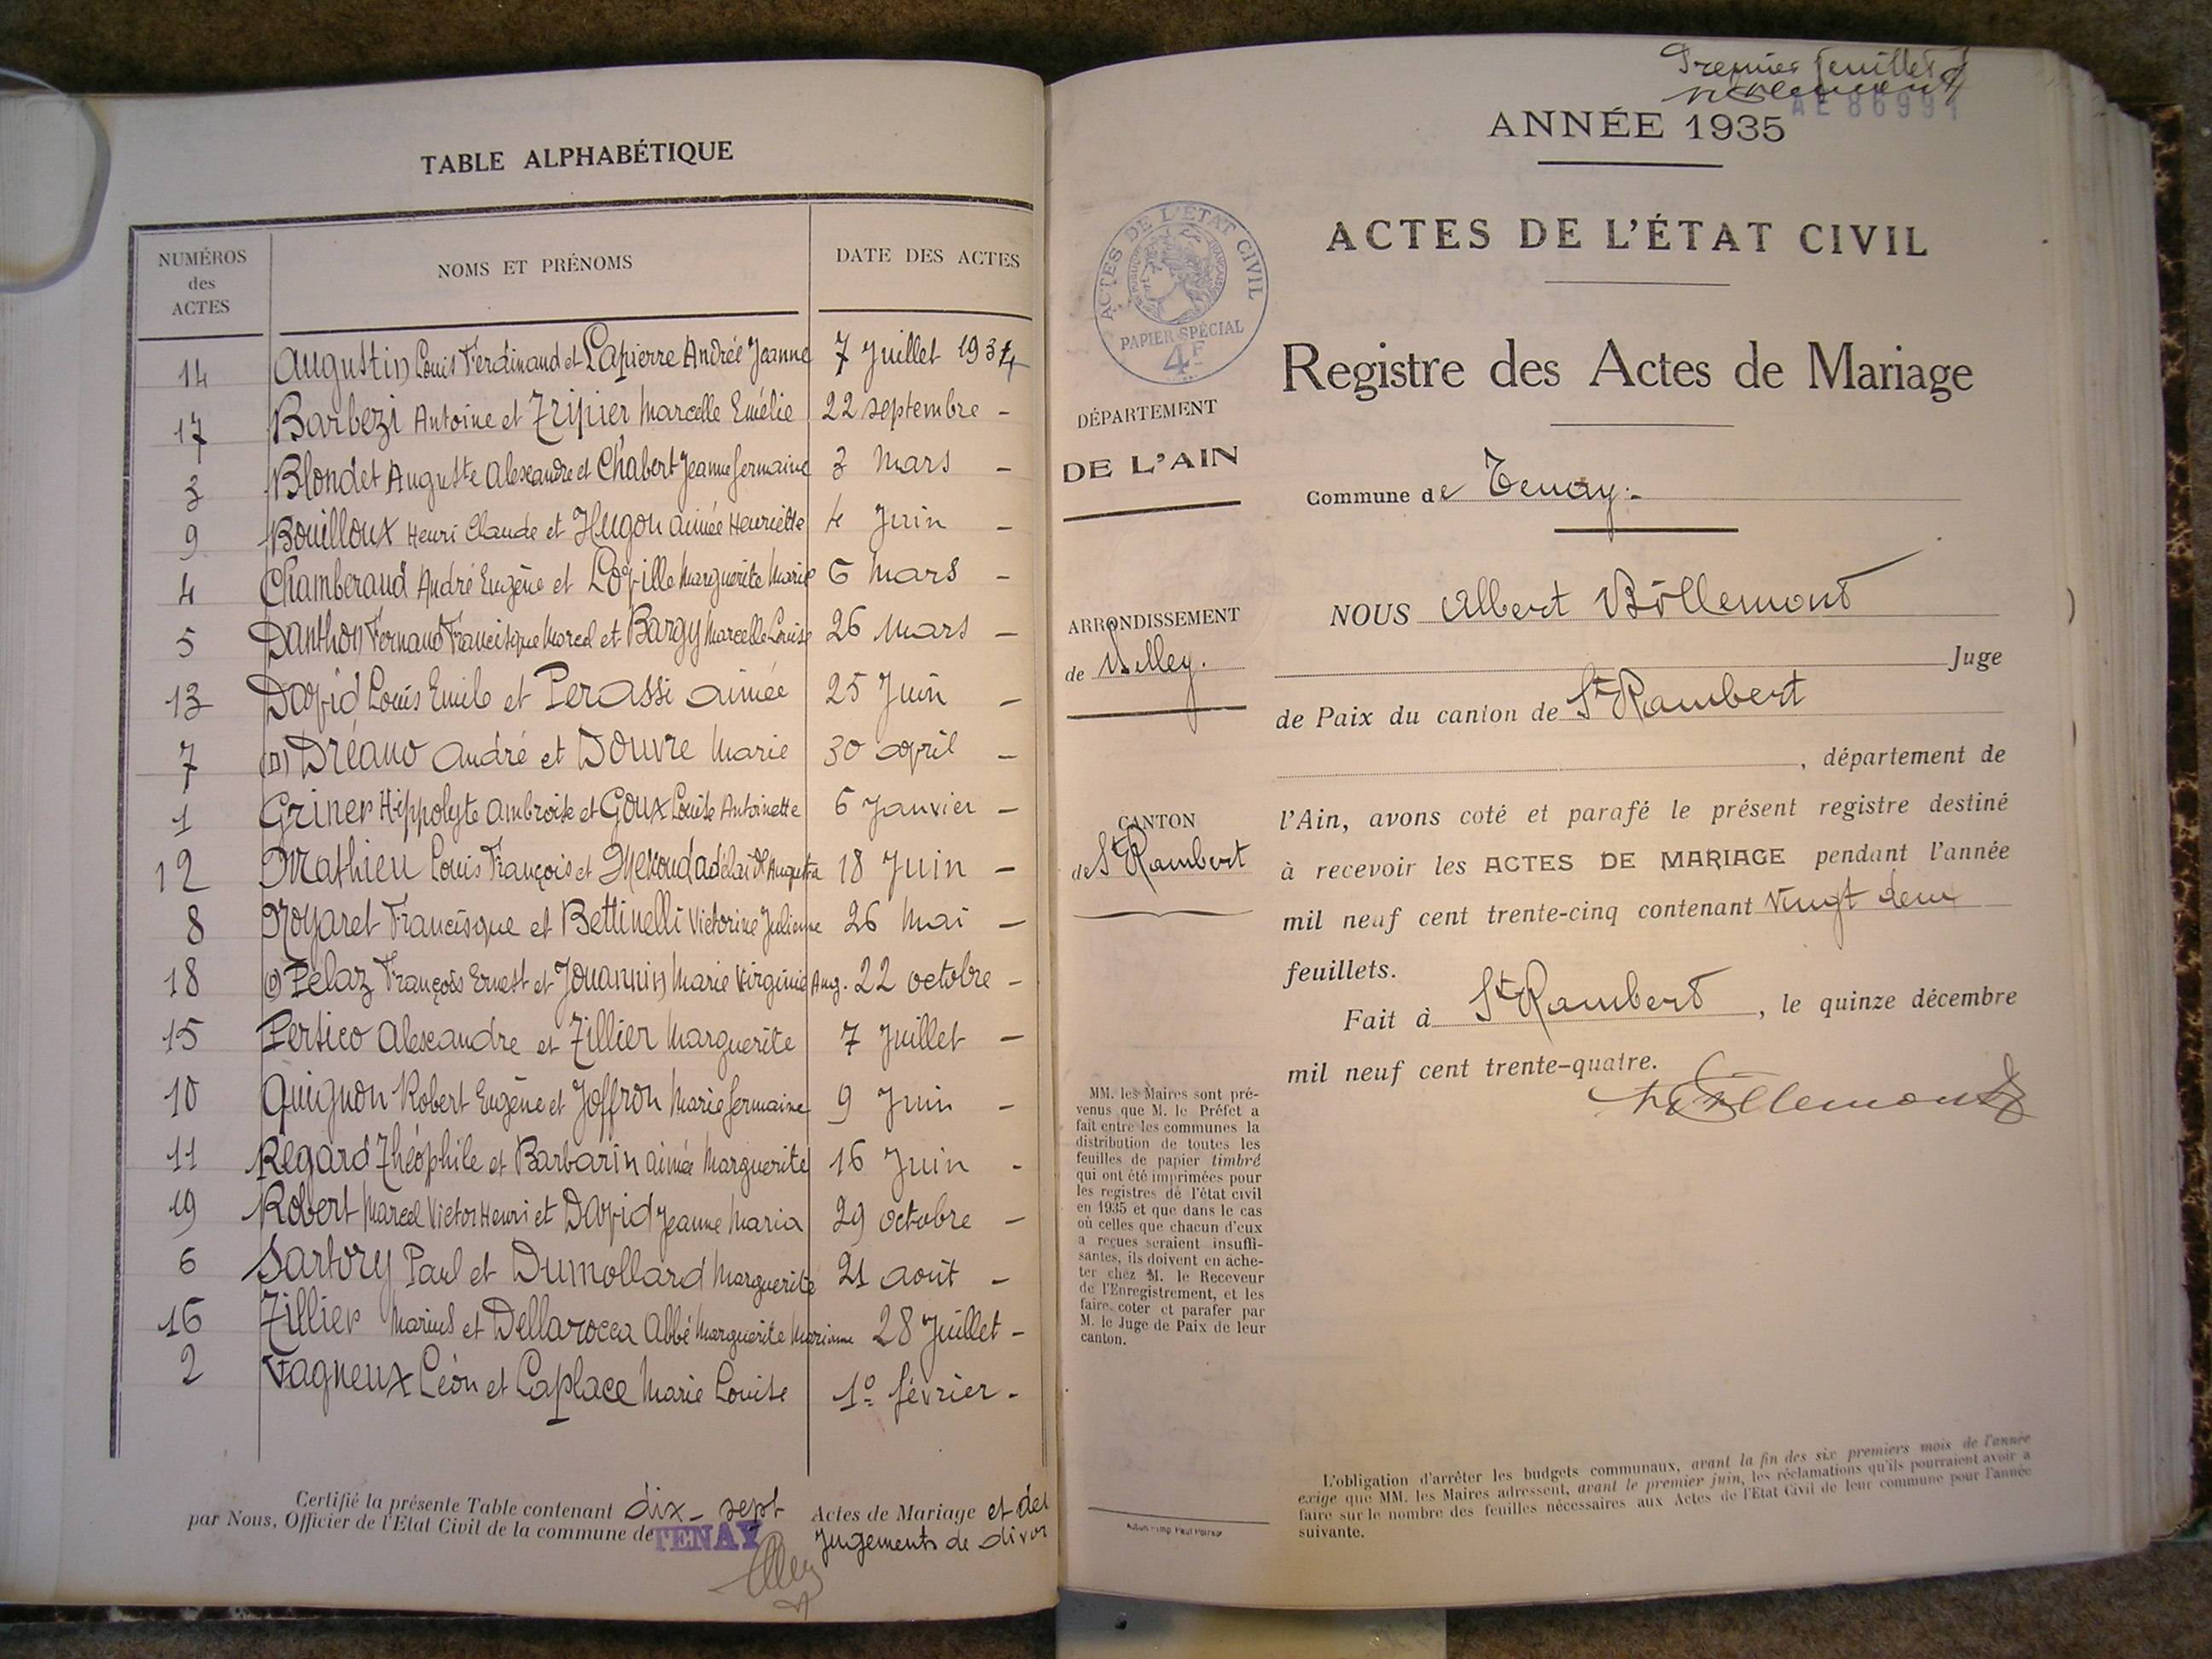 TABLE ALPHABÉTIQUE
NUMÉROS des ACTES NOMS ET PRÉNOMS DATE DES ACTES
14 Augustin Louis Ferdinand et Lapierre Andrée Jeanne 7 Juillet 1934
17 Barbezi Antoine et Tripier Marcelle Emélie 22 septembre -
3 Blondet Auguste Alexandre et Chabert Jeanne Germaine 3 Mars -
9 Bouilloux Henri Claude et Hugon aimée Henriette 4 Juin -
4 Chamberaud André Eugène et Loville Marguerite Marie 6 Mars -
5 Danthon Fernand Francisque Marcel et Bargy Marcelle Louise 26 Mars -
13 David Louis Emile et Perassi aimée 25 Juin -
7 (D) Dréano André et Douvre Marie 30 avril -
1 Griner Hippolyte ambroise et Goux Louise Antoinette 6 Janvier -
12 Mathieu Louis François et Adélaïde Augusta 18 Juin -
8 Noyaret Francisque et Bettinelli Victorine Julienne 26 Mai -
18 (D) Pélaz François Ernest et Jouannin Marie Virginie Aug. 22 octobre -
15 Persico Alexandre et Tillier Marguerite 7 Juillet -
10 Quignon Robert Eugène et Joffron Marie Germaine 9 Juin -
11 Regard Théophile et Barbarin aimée Marguerite 16 Juin -
19 Robert Marcel Victor Henri et David Jeanne Maria 29 octobre -
6 Sartory Paul et Dumollard Marguerite 21 août -
16 Tillier Marius et Dellarocca Abbé Marguerite Marianne 28 Juillet -
2 Vagneux Léon et Laplace Marie Louise 1º février -
Certifié la présente Table contenant dix-sept Actes de Mariage et de
par Nous, Officier de l'Etat Civil de la commune de TENAY Jugements de divor
Premier feuillet
AE 86991
ANNÉE 1935
ACTES DE L'ÉTAT CIVIL
Registre des Actes de Mariage
Commune de Tenay.-
NOUS Albert Böllemont
Juge
de Paix du canton de St Rambert
, département de
l'Ain, avons coté et parafé le présent registre destiné
à recevoir les ACTES DE MARIAGE pendant l'année
mil neuf cent trente-cinq contenant vingt deux
feuillets.
Fait à St Rambert, le quinze décembre
mil neuf cent trente-quatre.
Böllemont
ACTES DE L'ÉTAT CIVIL
RÉPUBLIQUE FRANÇAISE
PAPIER SPÉCIAL
4F
DÉPARTEMENT
DE L'AIN
ARRONDISSEMENT
de Belley.
CANTON
de St Rambert
MM. les Maires sont pré-
venus que M. le Préfet a
fait entre les communes la
distribution de toutes les
feuilles de papier timbré
qui ont été imprimées pour
les registres de l'état civil
en 1935 et que dans le cas
où celles que chacun d'eux
a reçues seraient insuffi-
santes, ils doivent en ache-
ter chez M. le Receveur
de l'Enregistrement, et les
faire coter et parafer par
M. le Juge de Paix de leur
canton.
L'obligation d'arrêter les budgets communaux, avant la fin des six premiers mois de l'année
exige que MM. les Maires adressent, avant le premier juin, les réclamations qu'ils pourraient avoir à
faire sur le nombre des feuilles nécessaires aux Actes de l'Etat Civil de leur commune pour l'année
suivante.